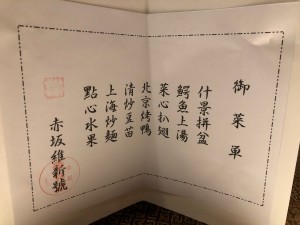 御菜單
什景拼盆
鰐魚上湯
菜心扒翅
北京烤鴨
清炒豆苗
上海炒麵
點心水果
赤坂維新號